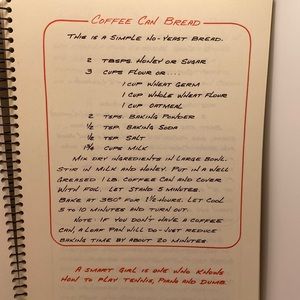 COFFEE CAN BREAD
THIS IS A SIMPLE NO-YEAST BREAD.
2 TBSPS. HONEY OR SUGAR
3 CUPS FLOUR OR....
1 CUP WHEAT GERM
1 CUP WHOLE WHEAT FLOUR
1 CUP OATMEAL
2 TSPS. BAKING POWDER
½ TSP. BAKING SODA
½ TSP. SALT
1¾ CUPS MILK
MIX DRY INGREDIENTS IN LARGE BOWL.
STIR IN MILK AND HONEY. PUT IN A WELL
GREASED 1 LB. COFFEE CAN AND COVER
WITH FOIL. LET STAND 5 MINUTES.
BAKE AT 350° FOR 1½ HOURS. LET COOL
5 TO 10 MINUTES AND TURN OUT.
NOTE: IF YOU DON'T HAVE A COFFEE
CAN, A LOAF PAN WILL DO - JUST REDUCE
BAKING TIME BY ABOUT 20 MINUTES.
A SMART GIRL IS ONE WHO KNOWS
HOW TO PLAY TENNIS, PIANO AND DUMB.